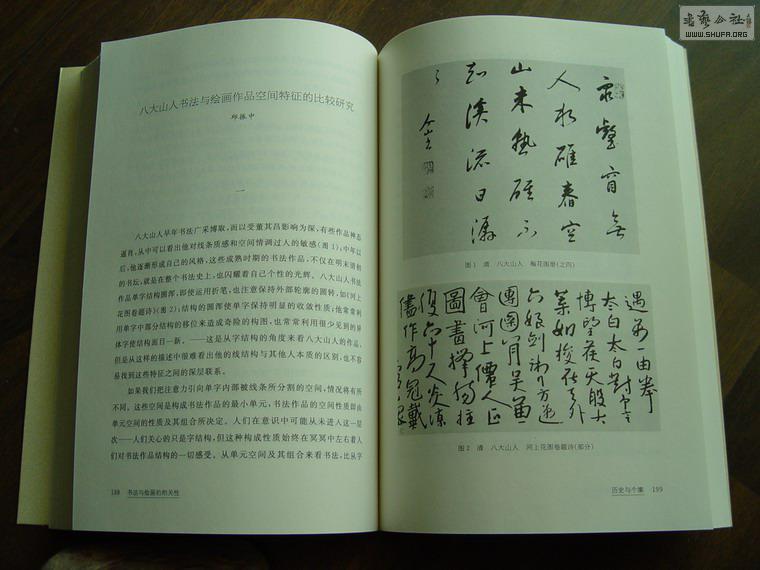 书艺公社
WWW.SHUFA.ORG
八大山人书法与绘画作品空间特征的比较研究
邱振中
一
八大山人早年书法广采博取,而以受董其昌影响为深,有些作品神态
逼肖,从中可以看出他对线条质感和空间情调过人的敏感(图1);中年以
后,他逐渐形成自己的风格,这些成熟时期的书法作品,不仅在明末清初
的书坛,就是在整个书法史上,也闪耀着自己个性的光辉。八大山人书法
作品单字结构圆浑,即使运用折笔,也注意保持外部轮廓的圆转,如《河上
花图卷题诗》(图2);结构的圆浑使单字保持明显的收敛性质;他常常利
用单字中部分结构的移位来造成奇险的构图,也常常利用很少见到的异
体字使结构面目一新。——这是从字结构的角度来看八大山人的作品,
但是从这样的描述中很难看出他的线结构与其他人本质的区别,也不容
易找到这些特征之间的深层联系。
如果我们把注意力引向单字内部被线条所分割的空间,情况将有所
不同。这些空间是构成书法作品的最小单元,书法作品的空间性质即由
单元空间的性质及其组合所决定。人们在意识中可能从未进入这一层
次——人们关心的只是字结构,但这种构成性质始终在冥冥中左右着人
们对书法作品结构的一切感受。从单元空间及其组合来看书法,比从字
188 书法与绘画的相关性
人於碓春空
山未熟碓不
知溪流日潺
图1 清 八大山人 梅花图册(之四)
遇不一由拳
太白太白对
博望茫天般大
菜如梭在
六娘剑术行方进
团圞月吴
会河上价人正
图画择扬柱
复六十人
儘作高冠戴
图2 清 八大山人 河上花图卷题诗(部分)
历史与个案 199